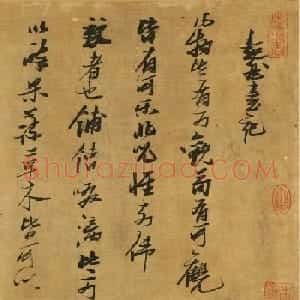 超然臺記
凡物皆有可觀苟有可觀
皆有可樂非必怪奇偉
麗者也餔糟啜漓皆可
以醉果蔬草木皆可以
Shufazidao.com